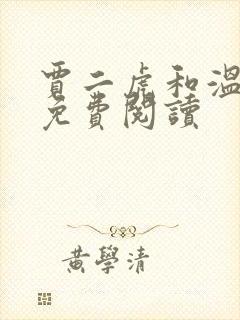 賈二虎和溫
免費閱讀
黃學清